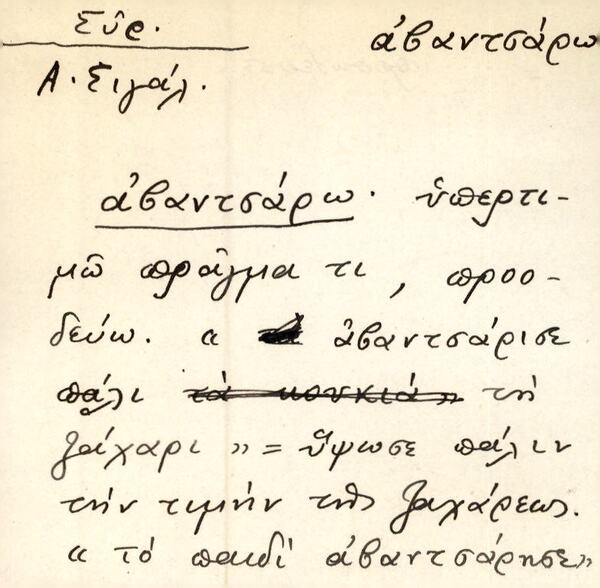 Σῦρ.
ἀβαντσάρω
Α. Σιγάλ.
ἀβαντσάρω. ὑπερτι-
μῶ πρᾶγμα τι, προο-
δεύω. « ἀβαντσάρισε
πάλι τὰ κουκιά» τὴ
ζάχαρι » = ὕψωσε πάλιν
τὴν τιμὴν τῆς ζαχάρεως.
« τὸ παιδὶ ἀβαντσάρησε»